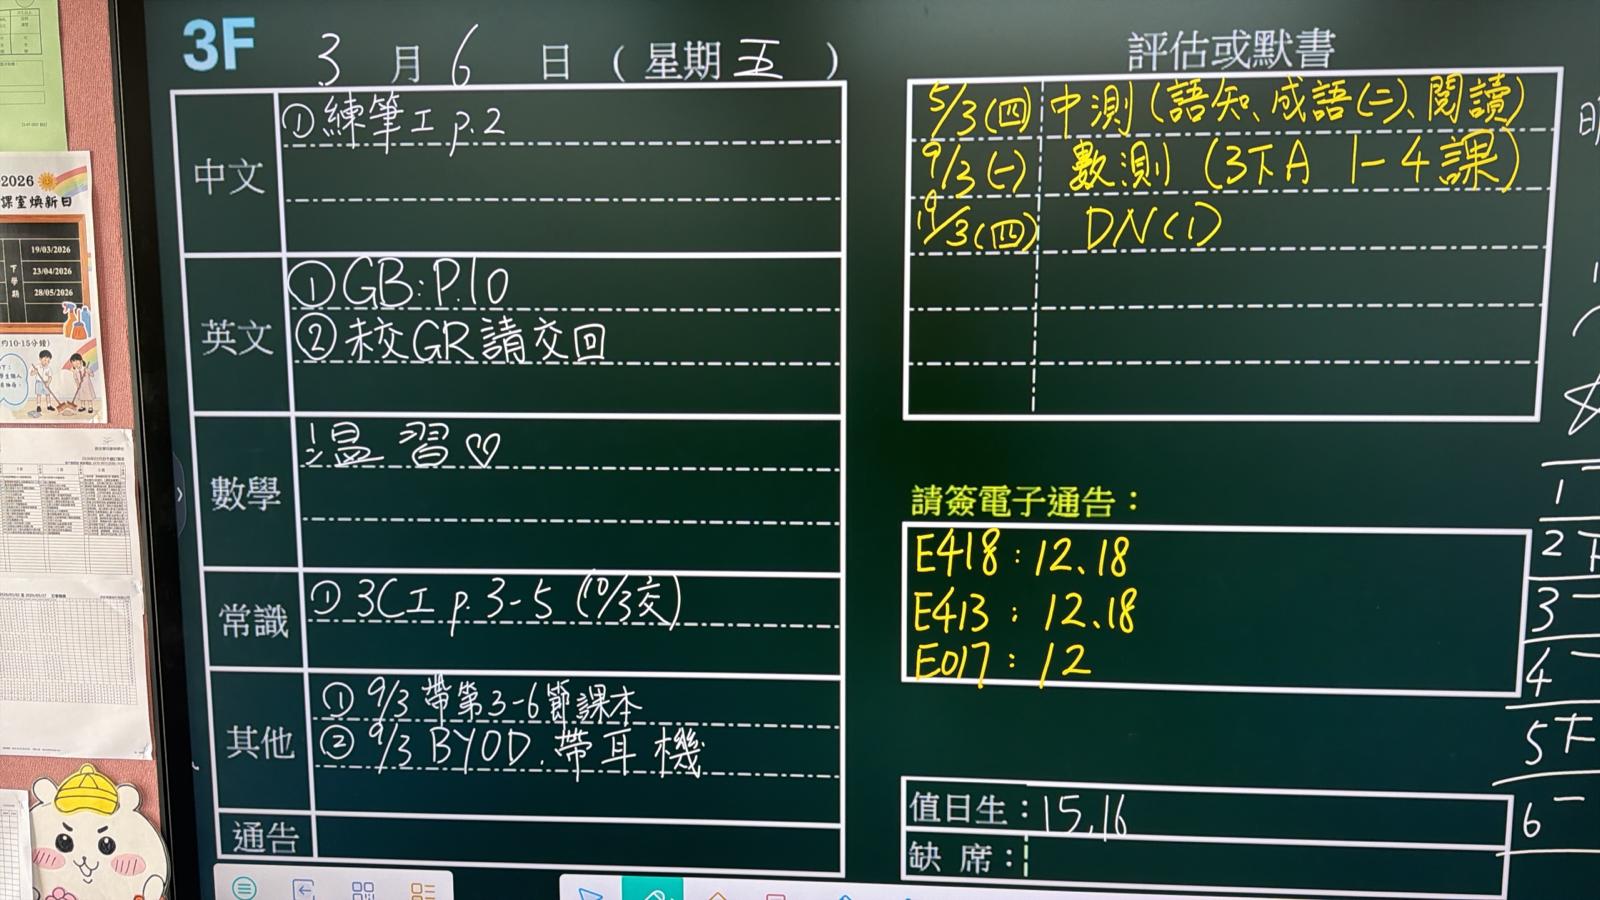 3F 3 月 6 日 ( 星期 五 )
中文
①練筆工 p.2
英文
①GB: P.10
②未交GR請交回
數學
温習♡
常識
①3C工 p.3-5 (10/3交)
其他
① 9/3 帶第3-6節課本
② 9/3 BYOD.帶耳機
通告
評估或默書
5/3(四) 中測(語知、成語(二)、閱讀)
9/3(一) 數測 (3下A 1-4課)
19/3(四) DN(1)
請簽電子通告：
E418 : 12、18
E413 : 12、18
E017 : 12
值日生：15,16
缺 席：
1
2 下
3
4
5下
6
2026
課室煥新日
下學期
19/03/2026
23/04/2026
28/05/2026
約10-15分鐘)